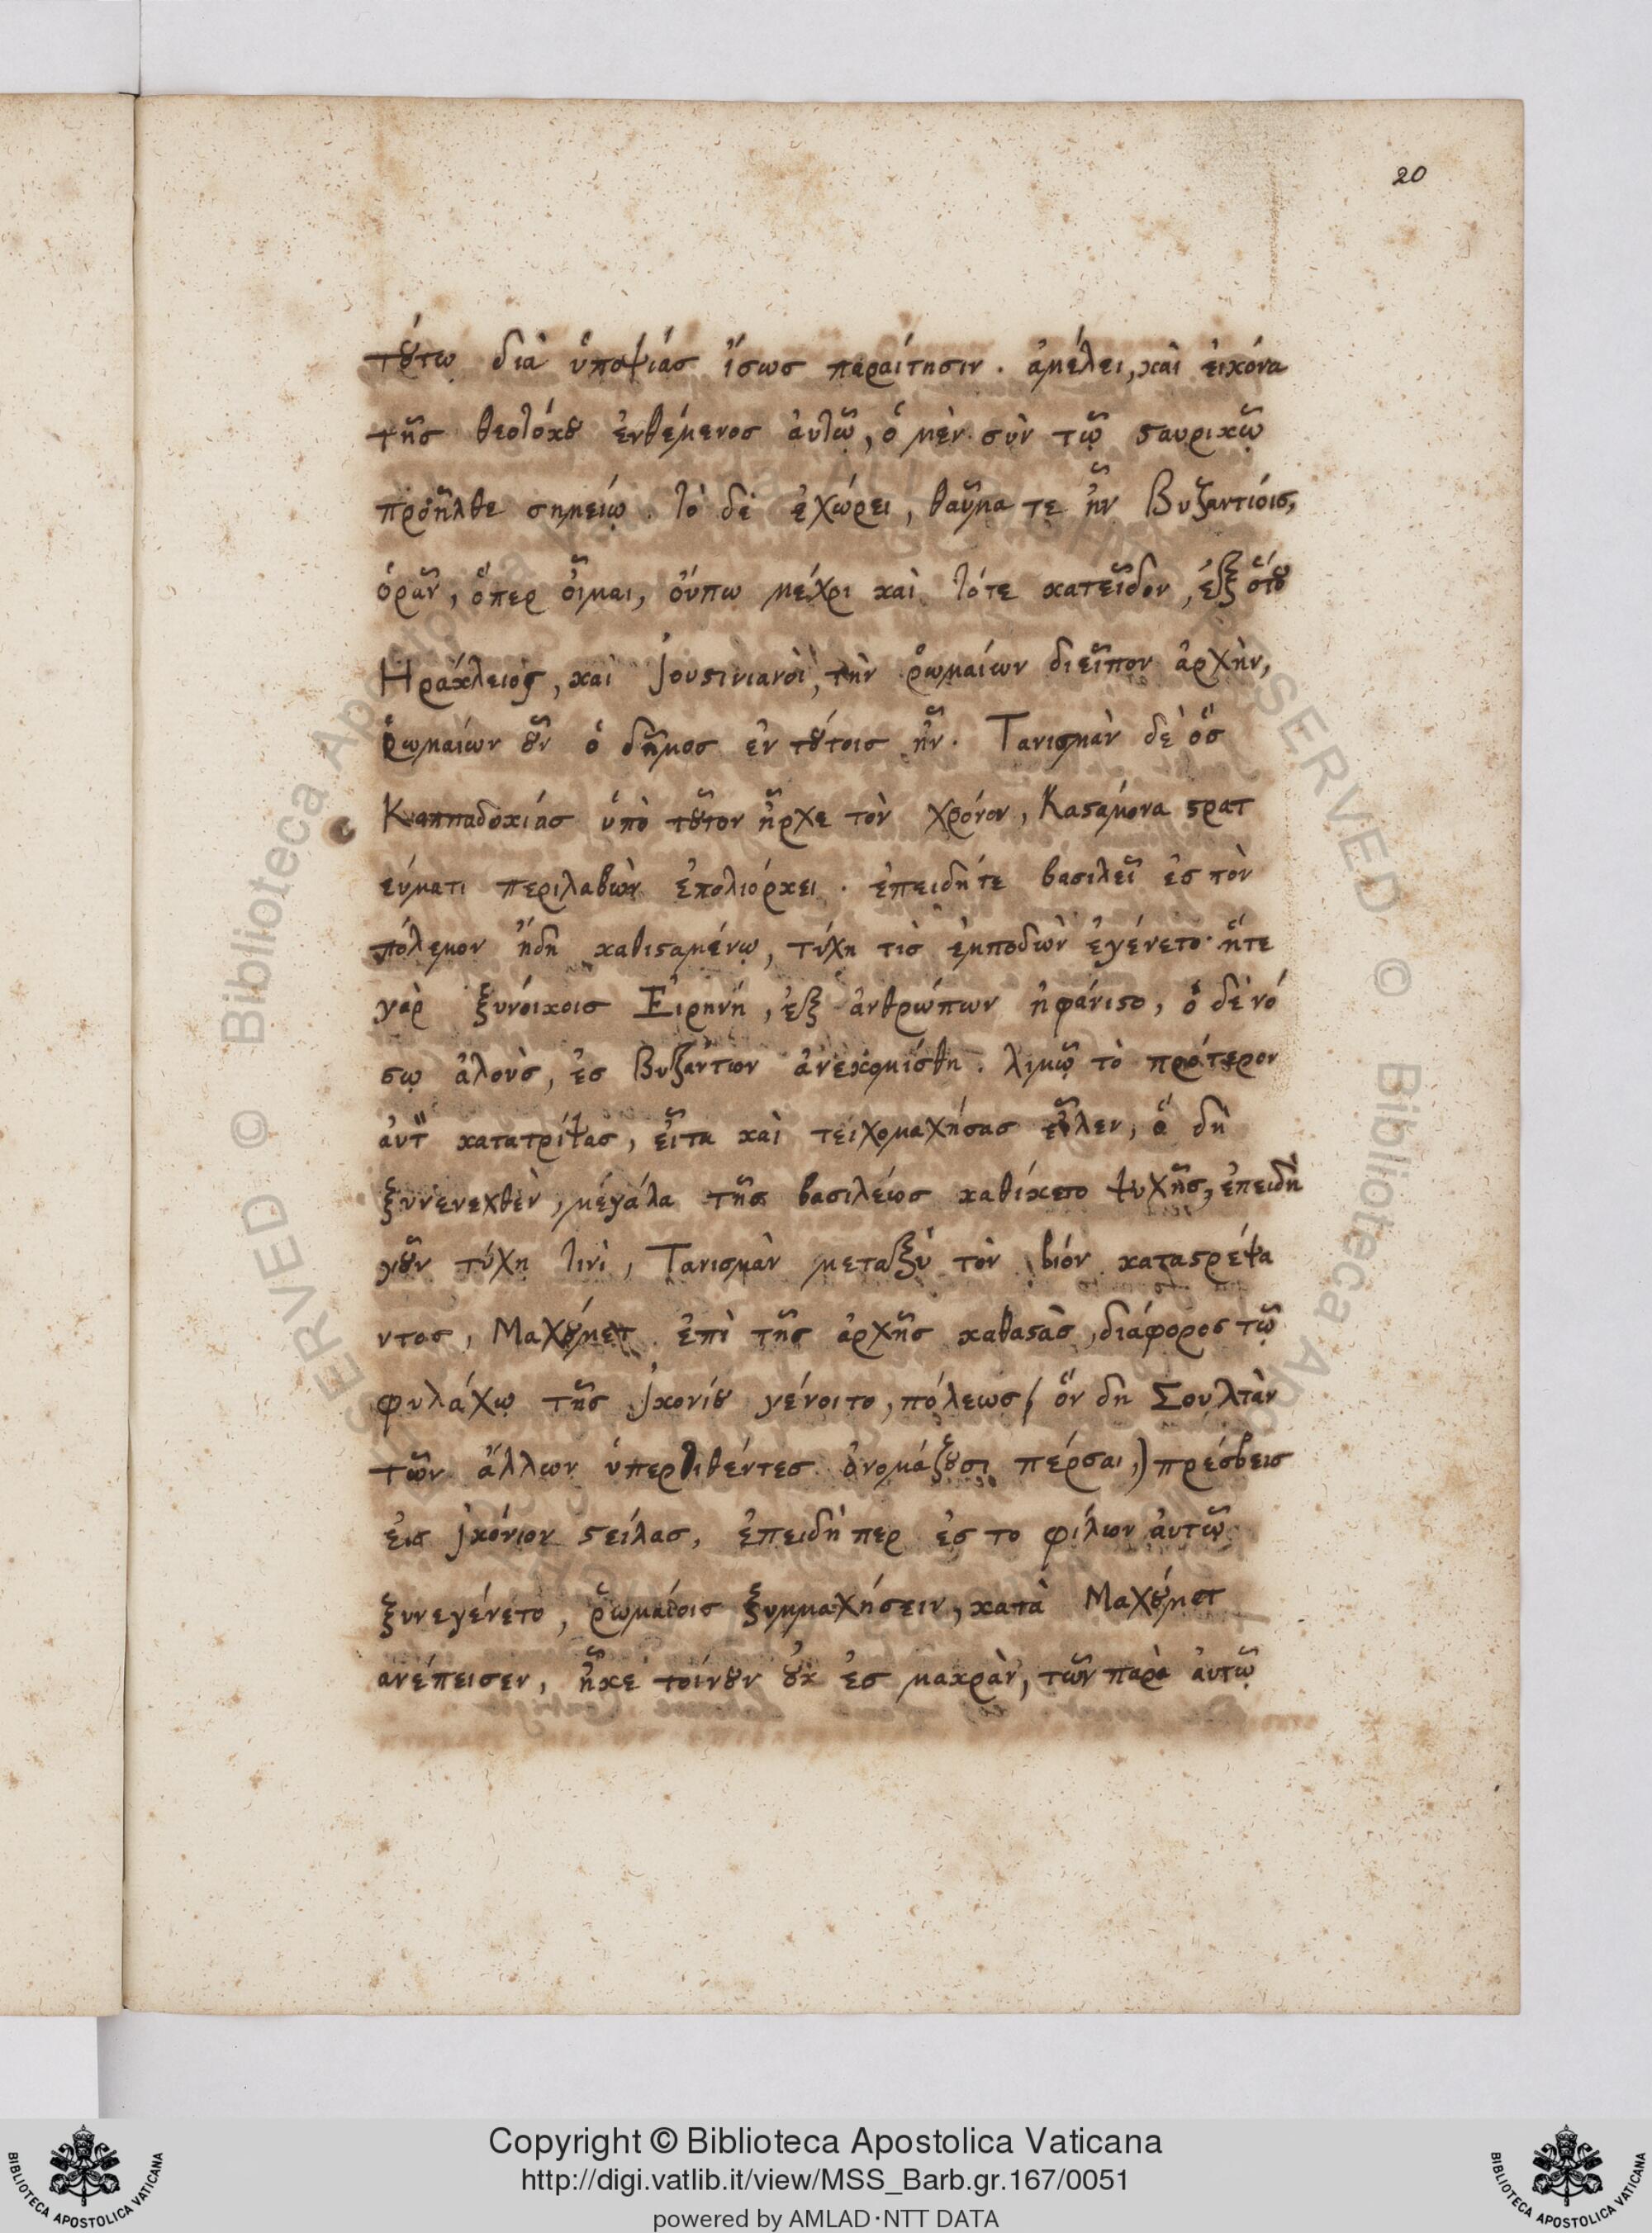 20
τούτῳ διὰ ὑποψίας ἴσως παραίτησιν. ἀμέλει, καὶ εἰκόνα
τῆς θεοτόκου ἐνθέμενος ἀυτῷ, ὁ μὲν σὺν τῷ σαυρικῷ
πρὀῆλθε σημείῳ. τὸ δὲ ἐχώρει, θαῦμα τε ἦν Βυζαντίοις,
ὁρᾶν, ὅπερ οἶμαι, ὄυπω μέχρι καὶ τότε κατεῖδον, ἐξ ὅτου
Ηράκλειος, καὶ Ἰουστινιανὸι, τὴν ῥωμαίων διεῖπον ἀρχὴν,
ῥωμαίων οὖν ὁ δῆμος ἐν τούτοις ἦν. Τανισμὰν δὲ ὃς
Καππαδοκίας ὑπὸ τοῦτον ἦρχε τὸν χρόνον, Κασάμονα στρατ
εύματι περιλαβὼν ἐπολιόρκει. ἐπειδήτε βασιλεῖ ἐς τὸν
πόλεμον ἤδη καθισταμένῳ, τύχη τὶς ἐμποδὼν ἐγένετο· ἥτε
γὰρ ξυνόικοις Εἰρηνή, ἐξ ἀνθρώπων ἠφάνιστο, ὁ δὲ νό
σῳ ἁλοὺς, ἐς Βυζάντιον ἀνεκομίσθη. λιμῷ τὸ πρότερον
ἀυτοὺ κατατρίψας, εἶτα καὶ τειχομαχήσας εἷλεν, ὃ δὴ
ξυνενεχθὲν, μεγάλα τῆς βασιλέως καθίκετο ψυχῆς, ἐπειδὴ
γοῦν τύχη τινὶ, Τανισμὰν μεταξὺ τὸν βίον καταστρέψα
ντος, Μαχούμετ ἐπὶ τῆς ἀρχῆς καθαστὰς, διάφορος τῷ
φυλάχῳ τῆς Ἰκονίου γένοιτο, πόλεως (ὅν δη Σουλτὰν
τῶν ἄλλων ὑπερτιθέντες ὀνομάζουσι πέρσαι,) πρέσβεις
ἐις Ἰκόνιον στείλας, ἐπειδή περ ἐς το φίλιον ἀυτῷ
ξυνεγένετο, ῥωμαίοις ξυμμαχήσειν, κατὰ Μαχούμετ
ανέπεισεν, ἧκε τοίνυν οὐκ ἐς μακρὰν, τῶν παρὰ ἀυτῷ
Copyright © Biblioteca Apostolica Vaticana
http://digi.vatlib.it/view/MSS_Barb.gr.167/0051
powered by AMLAD·NTT DATA